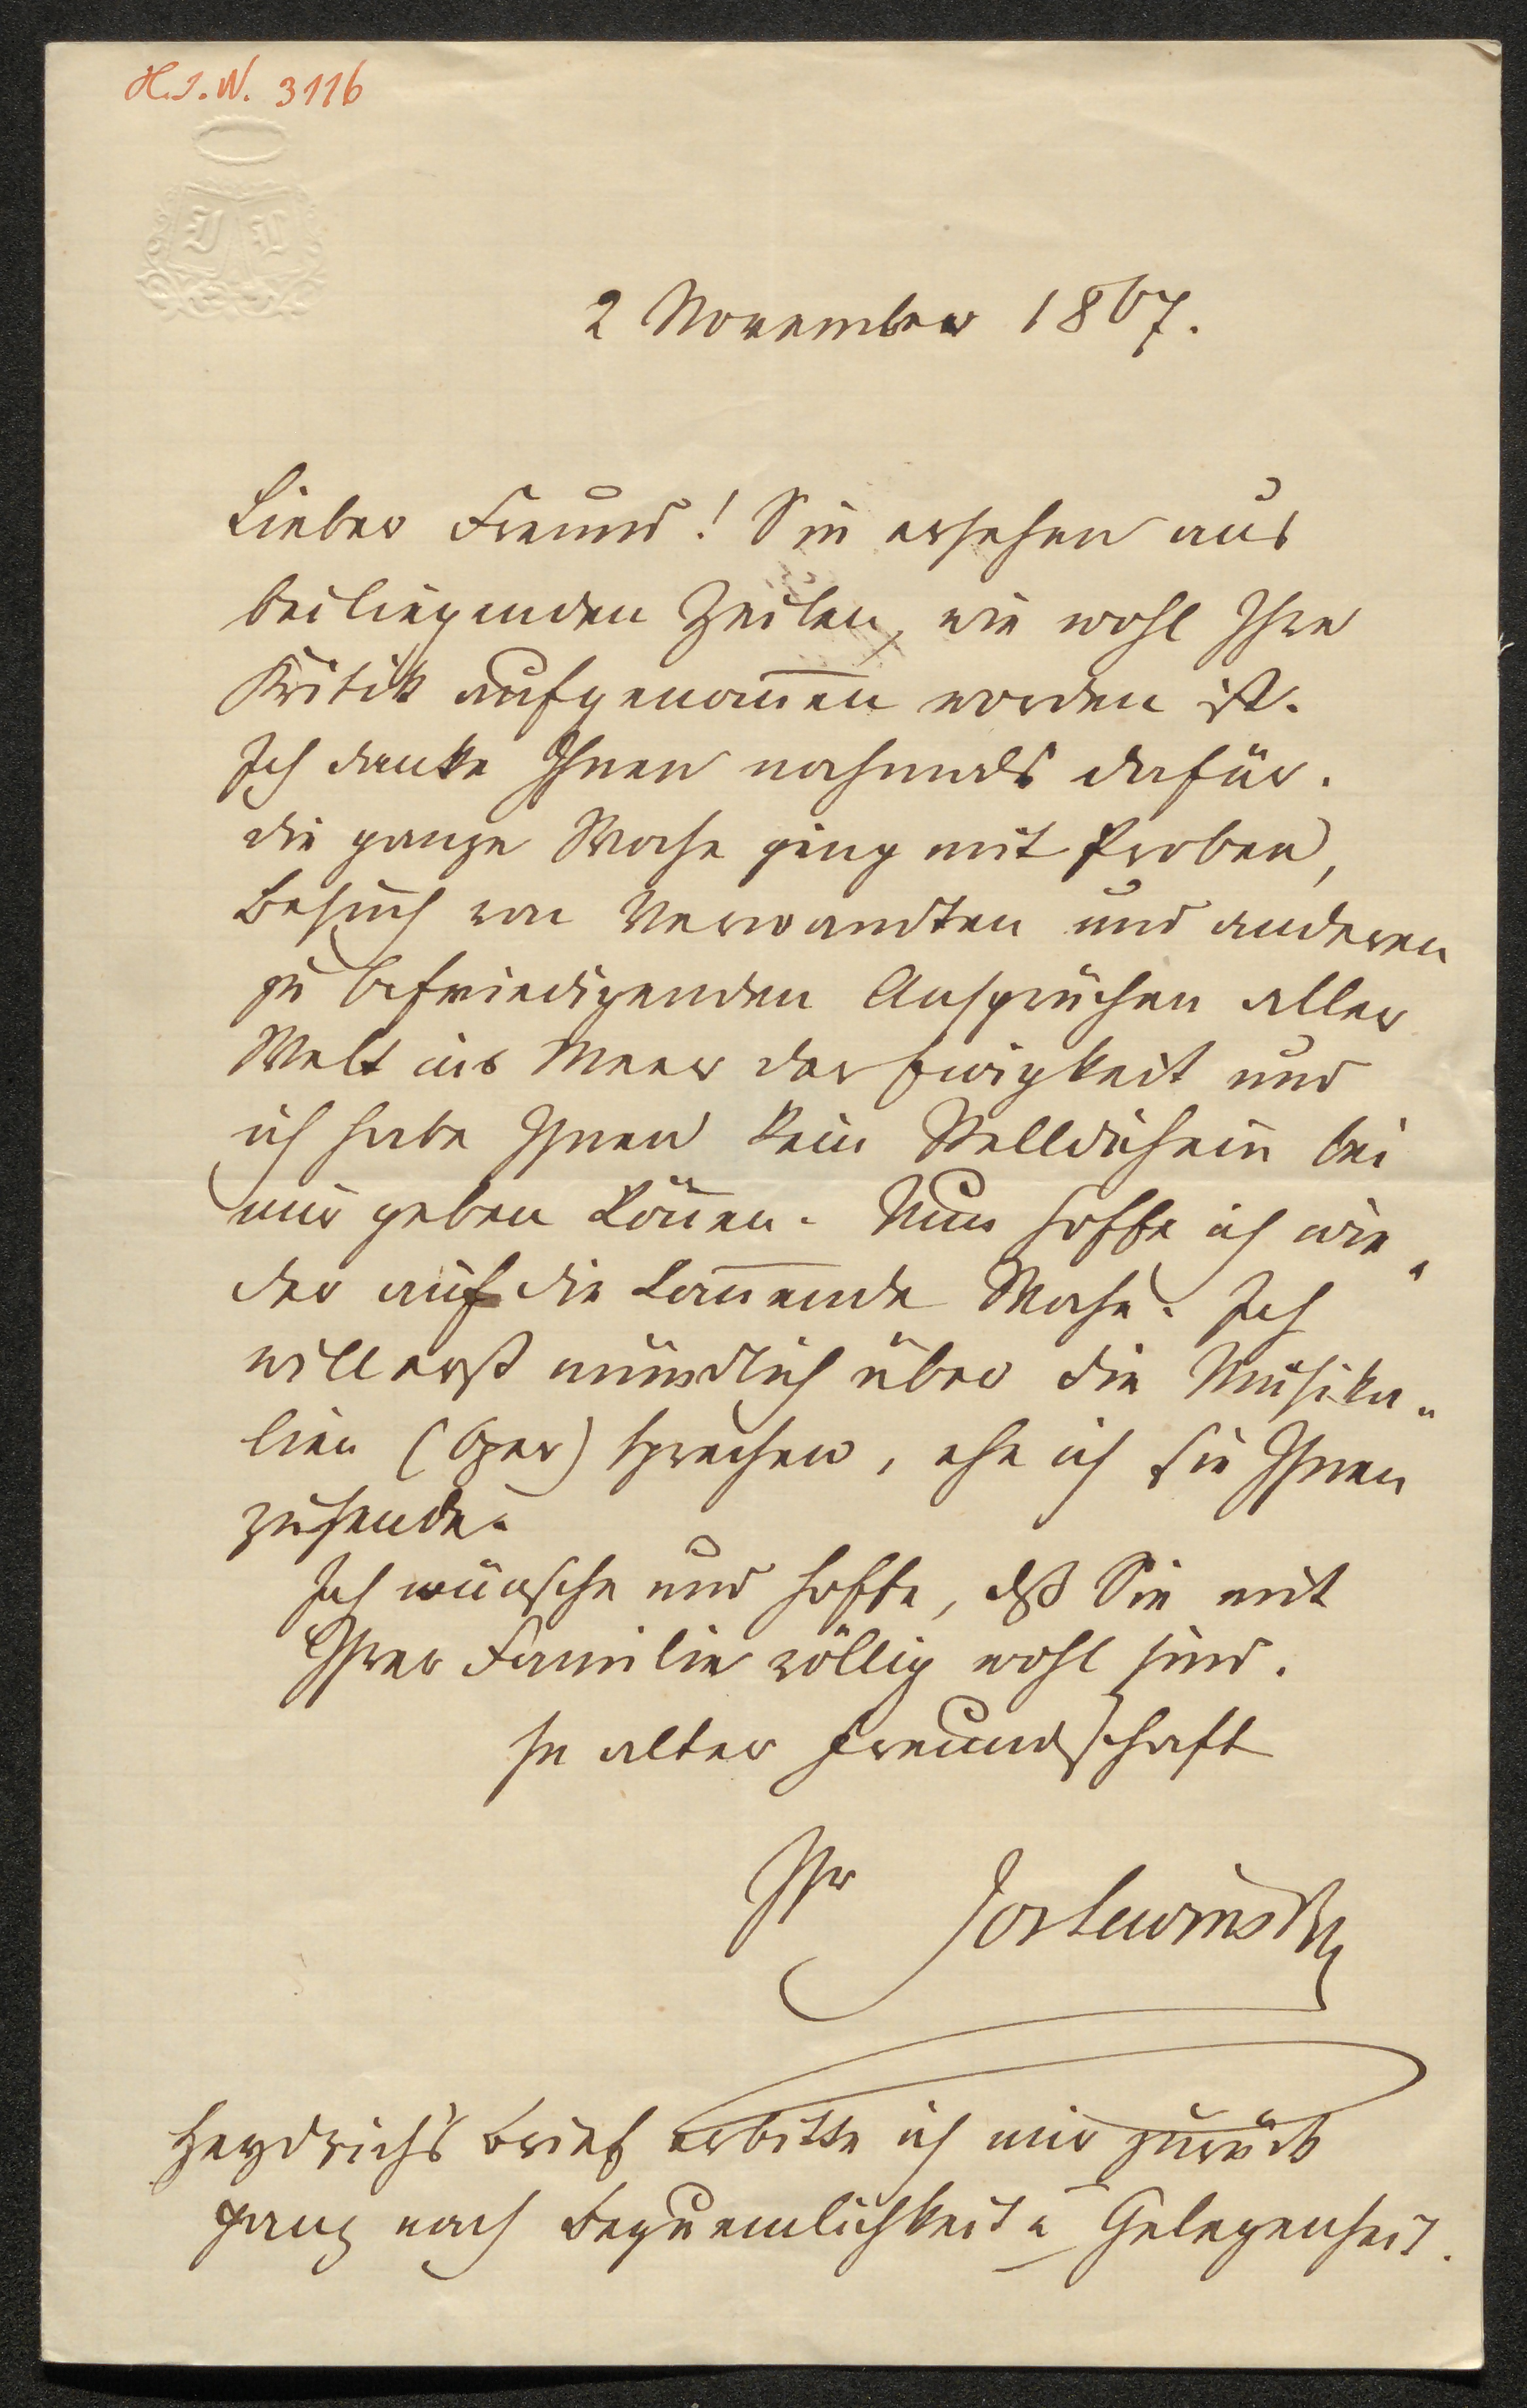 H.I.N. 3116
2 November 1867.
Lieber Freund! Sie ersehen aus
beiliegenden Zeilen, wie wohl Ihre
Kritik aufgenom̅en worden ist.
Ich danke Ihnen nochmals dafür.
Die ganze Woche ging mit Proben,
Besuch von Verwandten und anderen
zu befriedigenden Ansprüchen aller
Welt ins Meer der Ewigkeit und
ich habe Ihnen kein Stelldichein bei
mir geben kön̅en. Nun hoffe ich wie„
der auf die kom̅ende Woche. Ich
will erst mündlich über die Musika„
lien (Oper) sprechen, ehe ich sie Ihnen
zusende.
Ich wünsche und hoffe, dß Sie mit
Ihrer Familie völlig wohl sind.
In alter Freundschaft
Ihr Jos Lewinsky
Heydrich's Brief erbitte ich mir zurück
ganz nach Bequemlichkeit u Gelegenheit.